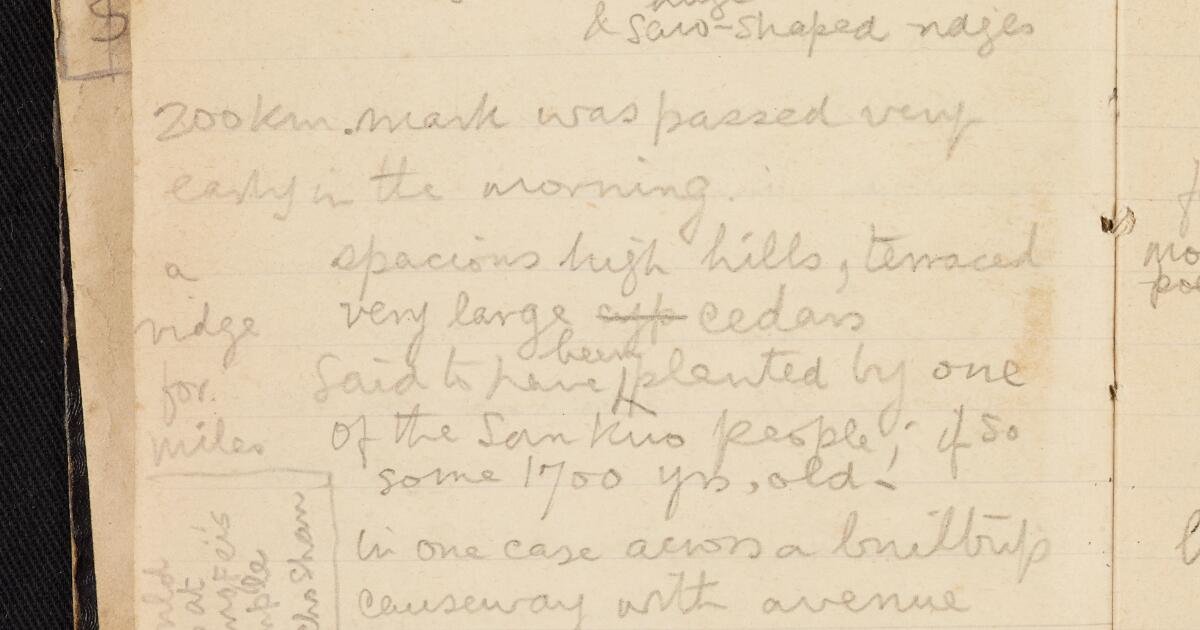 & saw-shaped ridges
200km. mark was passed very
early in the morning.
spacious high hills, terraced
very large cyp cedars
been
Said to have planted by one
of the San Kuo people; if so
some 1700 yrs, old.
in one case across a built up
causeway with avenue
a
ridge
for
miles
at